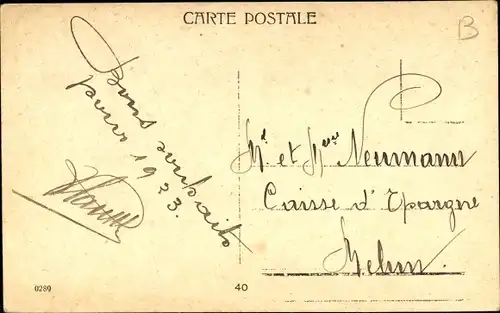 CARTE POSTALE
B
Bons souhaits
pour 1923.
Mr et Mme Neumann
Caisse d'Epargne
Melun.
0289
40